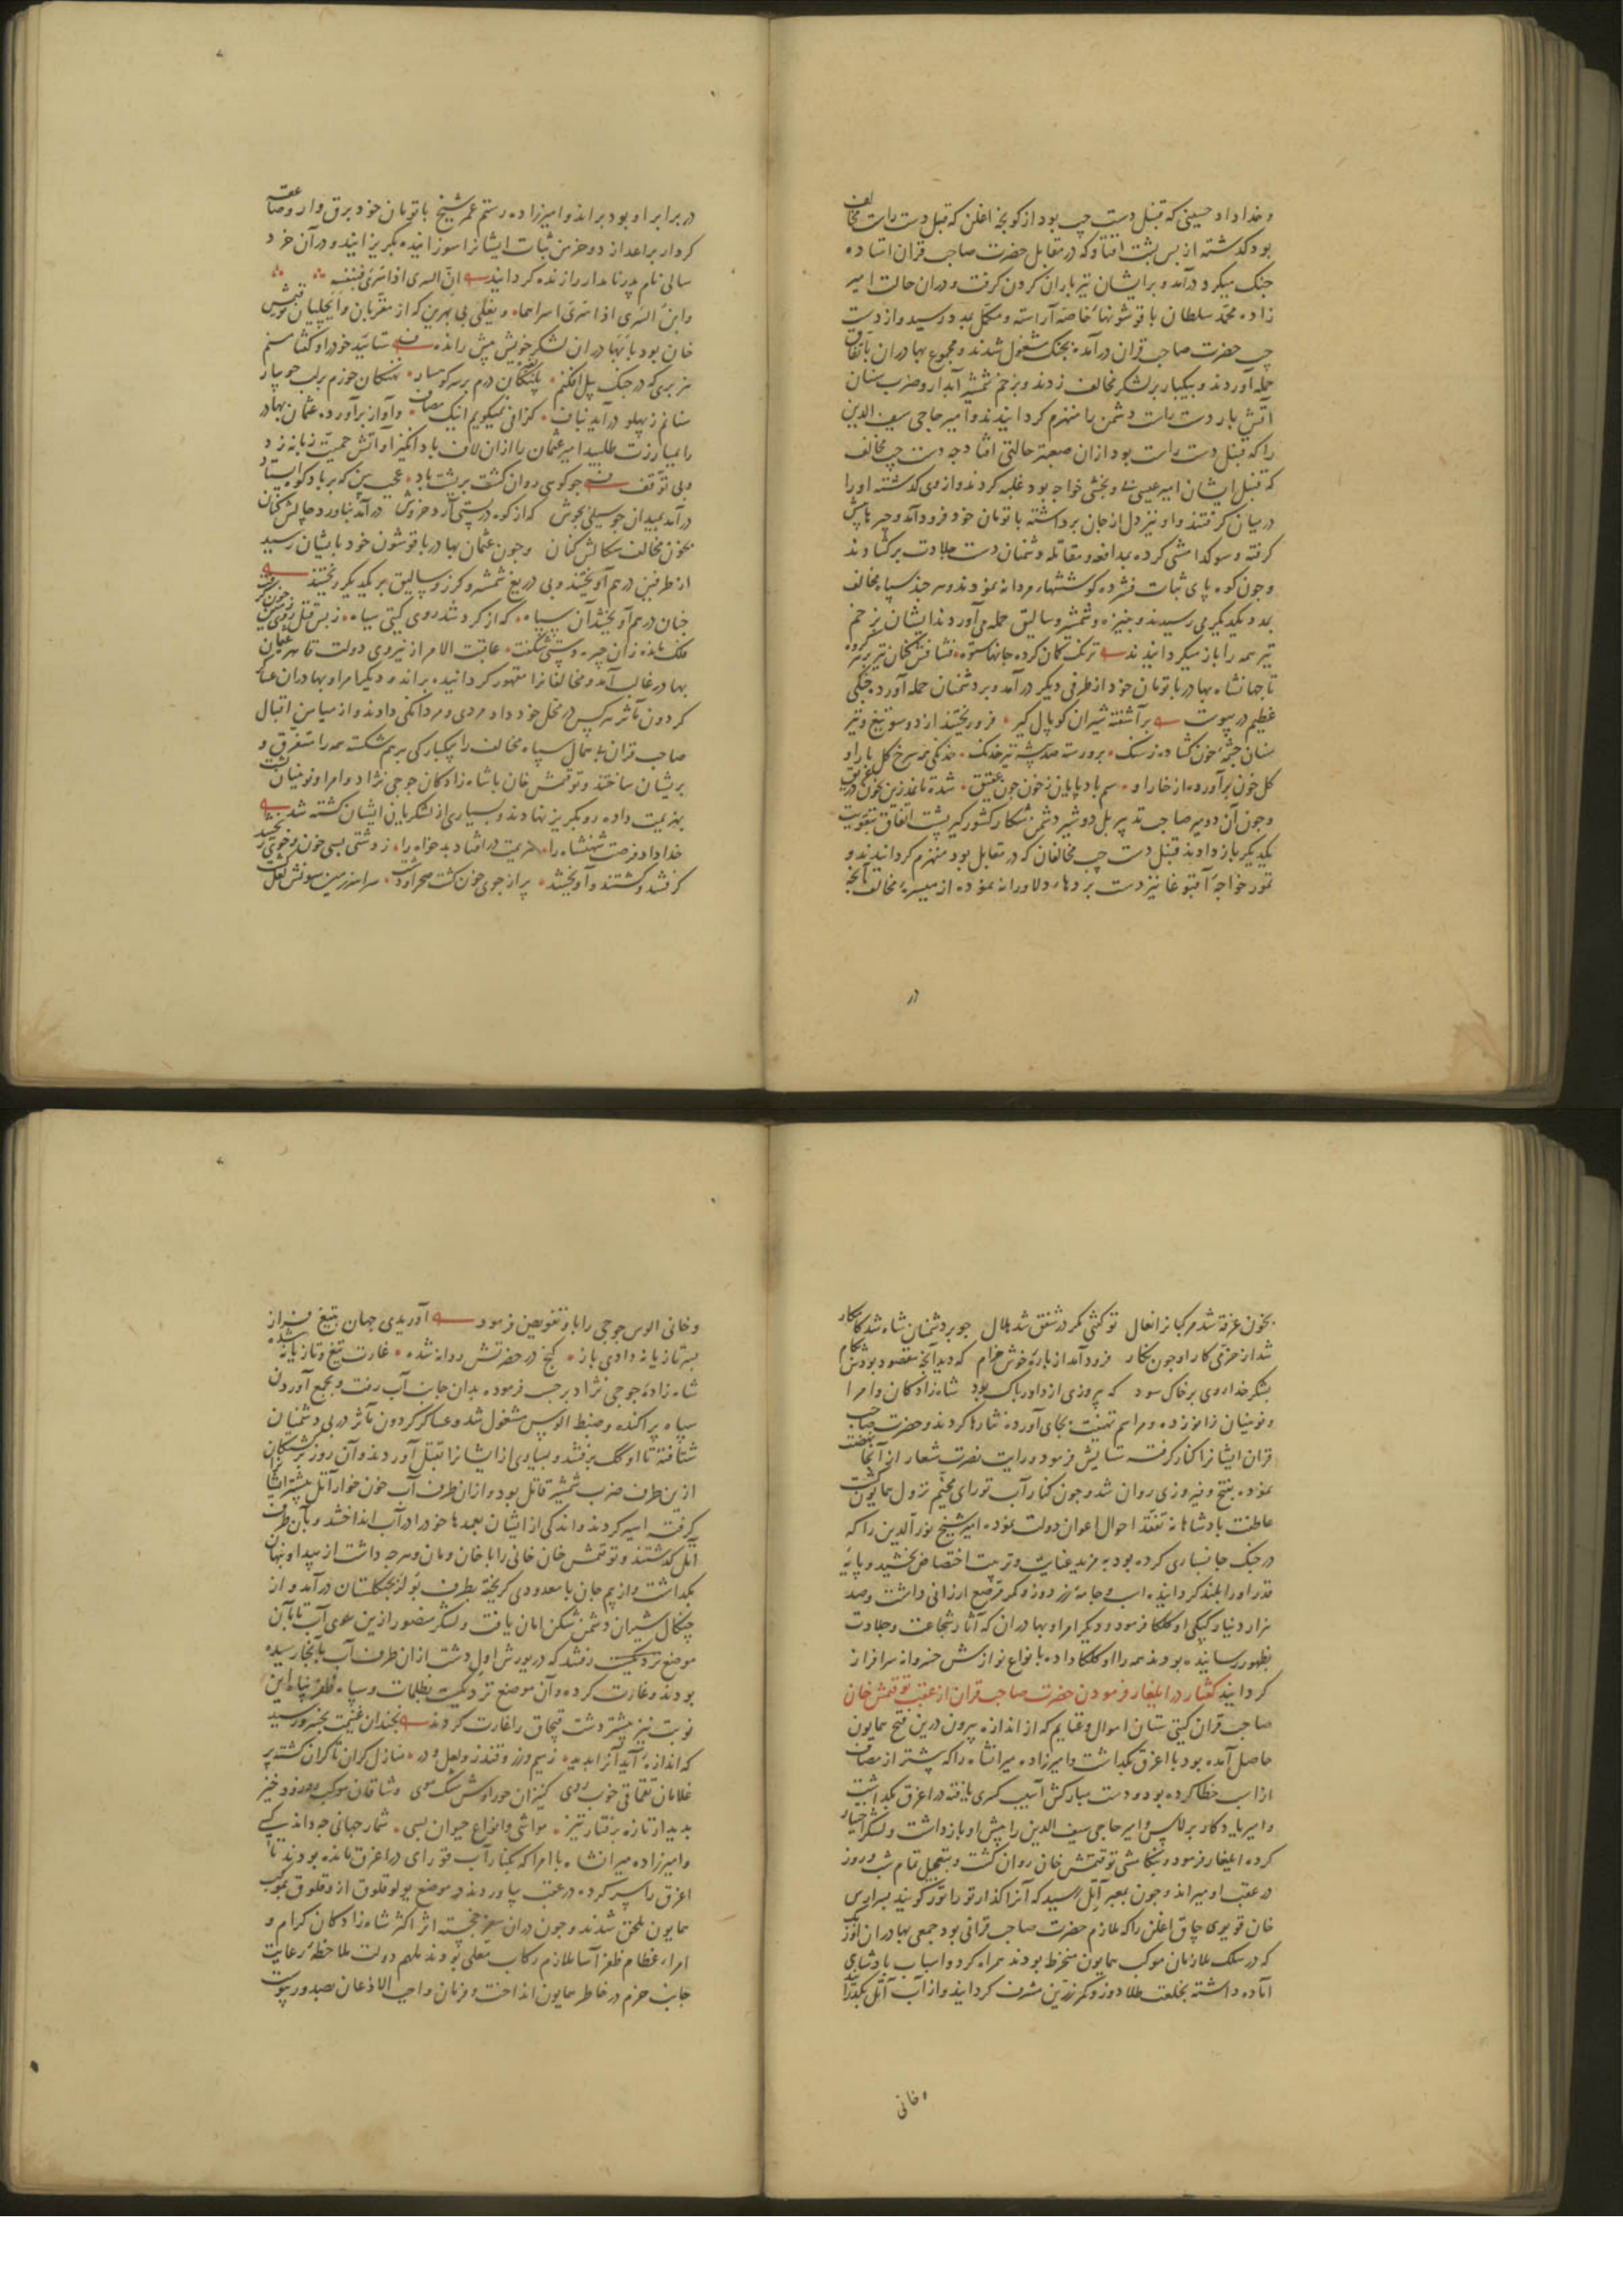 و خداداد حسینی که قنبل دست چپ بود از کونجه اغلن که قنبل دست راست مخالف
بود گذشته از پس پشت افتاد و که در مقابل حضرت صاحب قران استاده
جنگ میکرد درآمد و بر ایشان تیر باران کردن گرفت و دران حالت امیر
زاده محمد سلطان با قوشونهاء خاصه آراسته و مکمل بمدد رسید و از دست
چپ حضرت صاحب قران درآمده بجنگ مشغول شدند و مجموع بهادران باتفاق
حمله آوردند و بیکبار بر لشکر مخالف زدند و بزخم شمشیر آبدار و ضرب سنان
آتش بار دست راست دشمن را منهزم کردانیدند و امیر حاجی سیف الدین
را که قنبل دست راست بود ازان صعبتر حالتی افتاد چه دست چپ مخالف
که قنبل ایشان امیر عیسی و بخشی خواجه بود غلبه کردند و از وی گذشته او را
در میان گرفتند و او نیز دل از جان برداشته با تومان خود فرود آمد و چپرها پیش
گرفته و سوکدامشی کرده بمدافعه و مقاتله دشمنان دست جلادت برگشادند
و چون کوه پای ثبات فشرده کوششهاء مردانه نمودند و هر چند سپاه مخالف
بمدد یکدیگر می رسیدند و بنیزه و شمشیر و سالیق حمله می آوردند ایشان بزخم
تیر همه را باز میگردانیدند ترنگ کمان کرده جانها ستوه فشافش کنان تیر بر هر گروه
تا جهانشاه بهادر با تومان خود از طرفی دیگر درآمد و بر دشمنان حمله آورده جنگی
عظیم در پیوست برآشفته شیران کوپال گیر فرو ریختند از دو سو تیغ و تیر
سنان چشمه خون گشاده ز سنگ برو رسته صد بیشه تیر خدنگ خدنگی که سرخ گل بار او
گل خون برآورده از خار او سم بادپایان ز خون چون عقیق شده تا نمدزین بخون در غریق
و چون آن دو ببر صاحب تدبیر بل دو شیر دشمن شکار کشورگیر پشت اتفاق بتقویت
یکدیگر باز دادند قنبل دست چپ مخالفان که در مقابل بود منهزم کردانیدند و
تمور خواجه آقبوغا نیز دست بردهاء دلاورانه نموده از میسره مخالف آنچه
در
در برابر او بود براند و امیرزاده رستم عمر شیخ با تومان خود برق وار و صاعقه
کردار بر اعدا زد و خرمن ثبات ایشانرا سوزانیده بگریزانید و در آن خرد
سالی نام پدر نامدار را زنده کردانید ان السری اذا سری فبنفسه
وابن السری اذا سری اسراهما و یغلی بی بهرین که از مقربان و ایچکیان توقتمش
خان بود با بهادران لشکر خویش پیش رانده ستاینده خود را و گفتا منم
هزبری که در جنگ پیل افکنم پلنگان درم بر سر کوهسار نهنگان خورم بر لب جویبار
سنانم ز پهلو درآید بناف گزافی نمیگویم اینک مصاف و آواز برآورده عثمان بهادر
را بمبارزت طلبید امیر عثمان را ازان لاف باد انگیز آتش حمیت زبانه زد
و بی توقف چو کوهی روان گشت بر پشت باد عجب بین که بر باد کوه ایستاد
درآمد بمیدان چو سیلی بجوش که از کوه در پستی آرد خروش درآمد بناورد چالش کنان
بخون مخالف سگالش کنان و چون عثمان بهادر با قوشون خود بایشان رسید
از طرفین درهم آویختند و بی دریغ شمشیر و گرز و سالیق بر یکدیگر ریختند
چنان درهم آویختند آن سپاه که از گرد شد روی گیتی سیاه
فلک مانده زان چیره دستی شگفت عاقبت الامر از نیروی دولت قاهره عثمان
بهادر غالب آمد و مخالفانرا مقهور کردانیده براند و دیگر امرا و بهادران عساکر
گردون مآثر هر کس در محل خود داد مردی و مردانگی دادند و از میامن اقبال
صاحب قران بی همال سپاه مخالف را یکبارگی برهم شکسته همه را متفرق و
پریشان ساختند و توقتمش خان با شاه زادگان جوجی نژاد و امرا و نوینیان پشت
بهزیمت داده رو بگریز نهادند و بسیاری از لشکریان ایشان کشته شد
خدا داد فرصت شهنشاه را هزیمت در افتاد بدخواه را ز دشمن بسی خون و خوی ریختند
گرفتند و کشتند و آویختند پر از جوی خون گشت صحرا و دشت سراسر زمین سونش لعل گشت
بخون غرقه شد مرکبانرا نعال تو گفتی مگر در شفق شد هلال چو بر دشمنان شاه شد کامکار
شد از خرمی کار او چون نگار فرود آمد از باره خوش خرام که دید آنچه مقصود بودش بکام
بشکر خدا روی بر خاک سود که پیروزی از داور پاک بود شاه زادگان و امرا
و نوینیان زانو زده و مراسم تهنیت بجای آورده نثارها کردند و حضرت صاحب
قران ایشانرا کنار گرفته ستایش فرمود و رایت نصرت شعار از آنجا نهضت
نموده بفتح و فیروزی روان شد و چون کنار آب قورای مخیم نزول همایون گشت
عاطفت پادشاهانه تفقد احوال اعوان دولت نموده امیر شیخ نور الدین را که
در جنگ جانسپاری کرده بود بمزید عنایت و تربیت اختصاص بخشید و پایه
قدر او را بلند کردانید اسب و جامه زردوز و کمر مرصع ارزانی داشت و صد
هزار دینار کپکی اوکلکا فرمود و دیگر امرا و بهادران که آثار شجاعت و جلادت
بظهور رسانیده بودند همه را اوکلکا داده بانواع نوازش خسروانه سرافراز
کردانید گفتار در ایلغار فرمودن حضرت صاحب قران از عقب توقتمش خان
صاحب قران گیتی ستان اموال و غنایم که از اندازه بیرون درین فتح همایون
حاصل آمده بود با اغرق بگذاشت و امیرزاده میرانشاه را که پیشتر از مصاف
از اسب خطا کرده بود و دست مبارکش آسیب کسری یافته در اغرق بگذاشت
و امیر یادگار برلاس و امیر حاجی سیف الدین را پیش او بازداشت و لشکر اختیار
کرده ایلغار فرمود و بتکامشی توقتمش خان روان گشت و بتعجیل تمام شب و روز
در عقب او میراند و چون بمعبر آتل رسید که آنرا گذار توراتور گویند پسر ارس
خان قویری چاق اغلن را که ملازم حضرت صاحب قرانی بود جمعی بهادران اوزبک
که در سلک ملازمان موکب همایون منخرط بودند همراه کرد و اسباب پادشاهی
آماده داشته بخلعت طلادوز و کمر زرین مشرف کردانید و از آب آتل بگذرانید
و خانی
و خانی الوس جوجی را باو تفویض فرمود آوریدی جهان بتیغ فراز
بسر تازیانه دادی باز گنج در حضرتش روانه شده غارت تیغ و تازیانه شده
شاه زاده جوجی نژاد بر حسب فرموده بدان جانب آب رفت و بجمع آوردن
سپاه پراکنده و ضبط الوس مشغول شد و عساکر گردون مآثر در پی دشمنان
شتافته تا اوکک برفتند و بسیاری از ایشانرا بقتل آوردند و آن روز بر گشتگان
ازین طرف ضرب شمشیر قاتل بود و ازان طرف آب خون خوار آتل بیشتر ایشانرا
گرفته اسیر کردند و اندکی از ایشان بعمدها خود را در آب انداختند و بآن طرف
آتل گذشتند و توقتمش خان خانی را با خان و مان و هر چه داشت از پیدا و نهان
بگذاشت و از بیم جان با معدودی گریخته بطرف بولر بجنگلستان درآمد و از
چنگال شیران دشمن شکن امان یافت و لشکر منصور ازین سوی آب تا بآن
موضع نزدیک رفتند که در یورش اول دشت ازان طرف آب بآنجا رسیده
بودند و غارت کرده و آن موضع نزدیکست بظلمات و سپاه ظفر پناه این
نوبت نیز بیشتر دشت قبچاق را غارت کردند بچندان غنیمت بخسرو رسید
که اندازه آید آنرا بدید ز سیم و زر و قندز و لعل و در منازل کران تا کران گشته پر
غلامان قفچاقی خوب روی کنیزان حوراوش مشک موی
مواشی و انواع حیوان بسی شمار جهانی چه داند کسی
و امیرزاده میرانشاه با امرا که بکنار آب قورای در اغرق مانده بودند تا
اغرق را سپر کرده در عقب بیاوردند در موضع یولوقلوق ازوقلوق بموکب
همایون ملحق شدند و چون دران سفر خجسته اثر اکثر شاه زادگان کرام و
امراء عظام ظفرآسا ملازم رکاب معلی بودند ملهم دولت ملاحظه رعایت
جانب حزم در خاطر همایون انداخت و فرمان واجب الاذعان بصدور پیوست